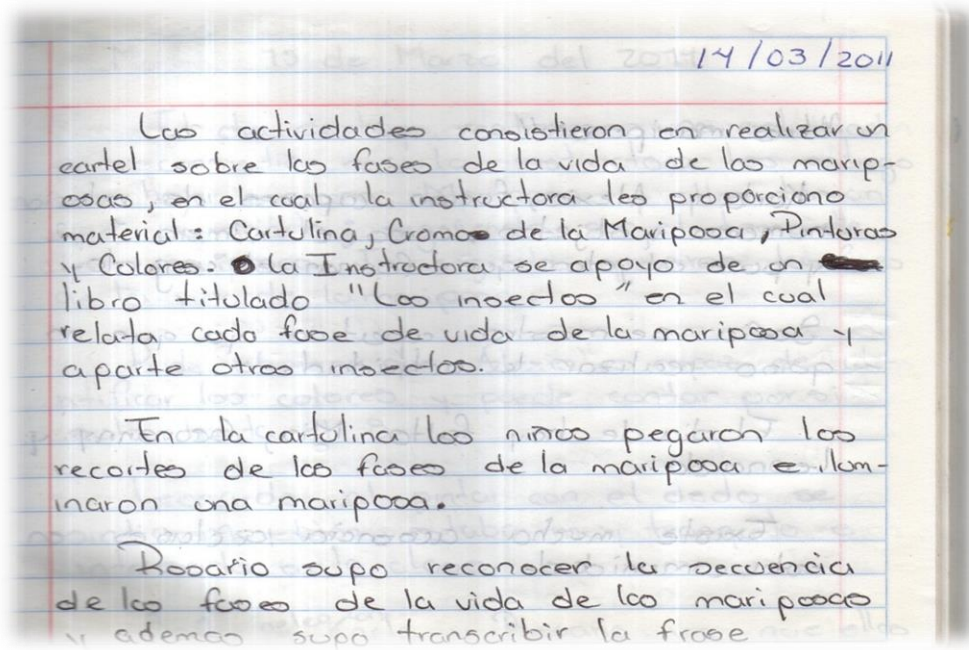 14/03/2011
Las actividades consistieron en realizar un
cartel sobre las fases de la vida de las marip-
osas, en el cual la instructora les proporciono
material: Cartulina, Cromos de la Mariposa, Pinturas
y Colores. la Instructora se apoyo de un
libro titulado "Los insectos" en el cual
relata cada fase de vida de la mariposa y
aparte otros insectos.
En la cartulina los niños pegaron los
recortes de las fases de la mariposa e ilum-
inaron una mariposa.
Rosario supo reconocer la secuencia
de las fases de la vida de las mariposas
y ademas supo transcribir la frase